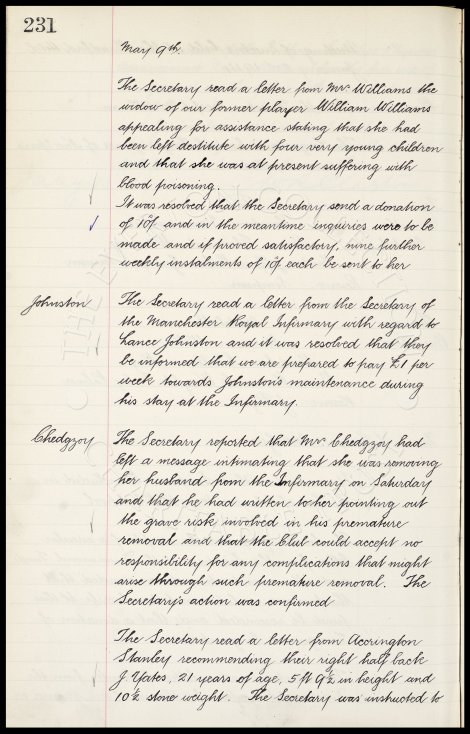 231
May 9th.
The Secretary read a letter from Mrs Williams the
widow of our former player William Williams
appealing for assistance stating that she had
been left destitute with four very young children
and that she was at present suffering with
blood poisoning.
It was resolved that the Secretary send a donation
of 10/- and in the meantime inquiries were to be
made and if proved satisfactory, nine further
weekly instalments of 10/- each be sent to her
Johnston
The Secretary read a letter from the Secretary of
the Manchester Royal Infirmary with regard to
Lance Johnston and it was resolved that they
be informed that we are prepared to pay £1 per
week towards Johnston's maintenance during
his stay at the Infirmary.
Chedgzoy
The Secretary reported that Mrs Chedgzoy had
left a message intimating that she was removing
her husband from the Infirmary on Saturday
and that he had written to her pointing out
the grave risk involved in his premature
removal and that the Club could accept no
responsibility for any complications that might
arise through such premature removal. The
Secretary's action was confirmed
The Secretary read a letter from Accrington
Stanley recommending their right half back
J. Yates, 21 years of age, 5 ft 9½ in height and
10½ stone weight. The Secretary was instructed to